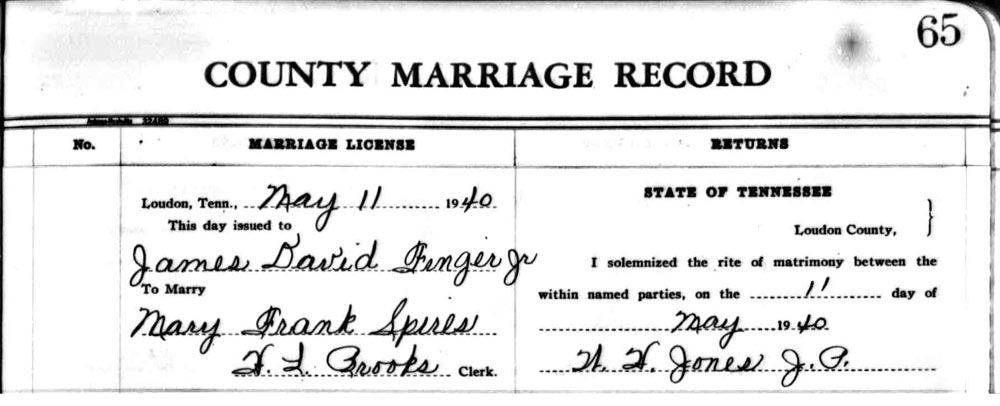 65
COUNTY MARRIAGE RECORD
No.
MARRIAGE LICENSE
Loudon, Tenn., May 11 1940
This day issued to
James David Finger Jr
To Marry
Mary Frank Spires
H. L. Brooks Clerk.
RETURNS
STATE OF TENNESSEE
Loudon County,
I solemnized the rite of matrimony between the
within named parties, on the 11 day of
May 1940
W. H. Jones J.P.